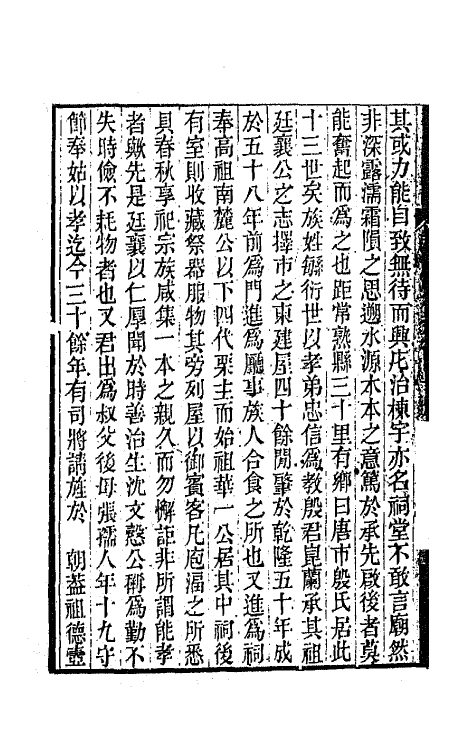 其或力能自致無待而興庀治棟宇亦名祠堂不敢言廟然
非深露濡霜隕之思邇水源木本之意篤於承先啟後者莫
能奮起而為之也距常熟縣三十里有鄉曰唐市殷氏居此
十三世矣族姓緐衍世以孝弟忠信為教殷君崑蘭承其祖
廷襄公之志擇市之東建屋四十餘閒肇於乾隆五十年成
於五十八年前為門進為廳事族人合食之所也又進為祠
奉高祖南麓公以下四代栗主而始祖華一公居其中祠後
有室則收藏祭器服物其旁列屋以御賓客凡庖湢之所悉
具春秋享祀宗族咸集一本之親久而勿懈詎非所謂能孝
者歟先是廷襄以仁厚聞於時善治生沈文慤公稱為勤不
失時儉不耗物者也又君出為叔父後母張孺人年十九守
節奉姑以孝迄今三十餘年有司將請旌於 朝蓋祖德靈